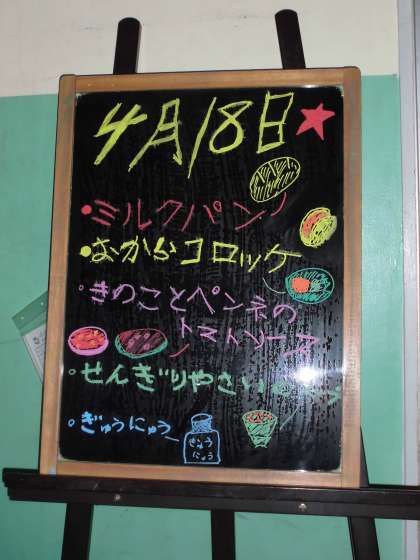 4月18日
•ミルクパン
•おからコロッケ
•きのことペンネの
トマトソース
•せんぎりやさい
•ぎゅうにゅう
ぎゅう
にゅう